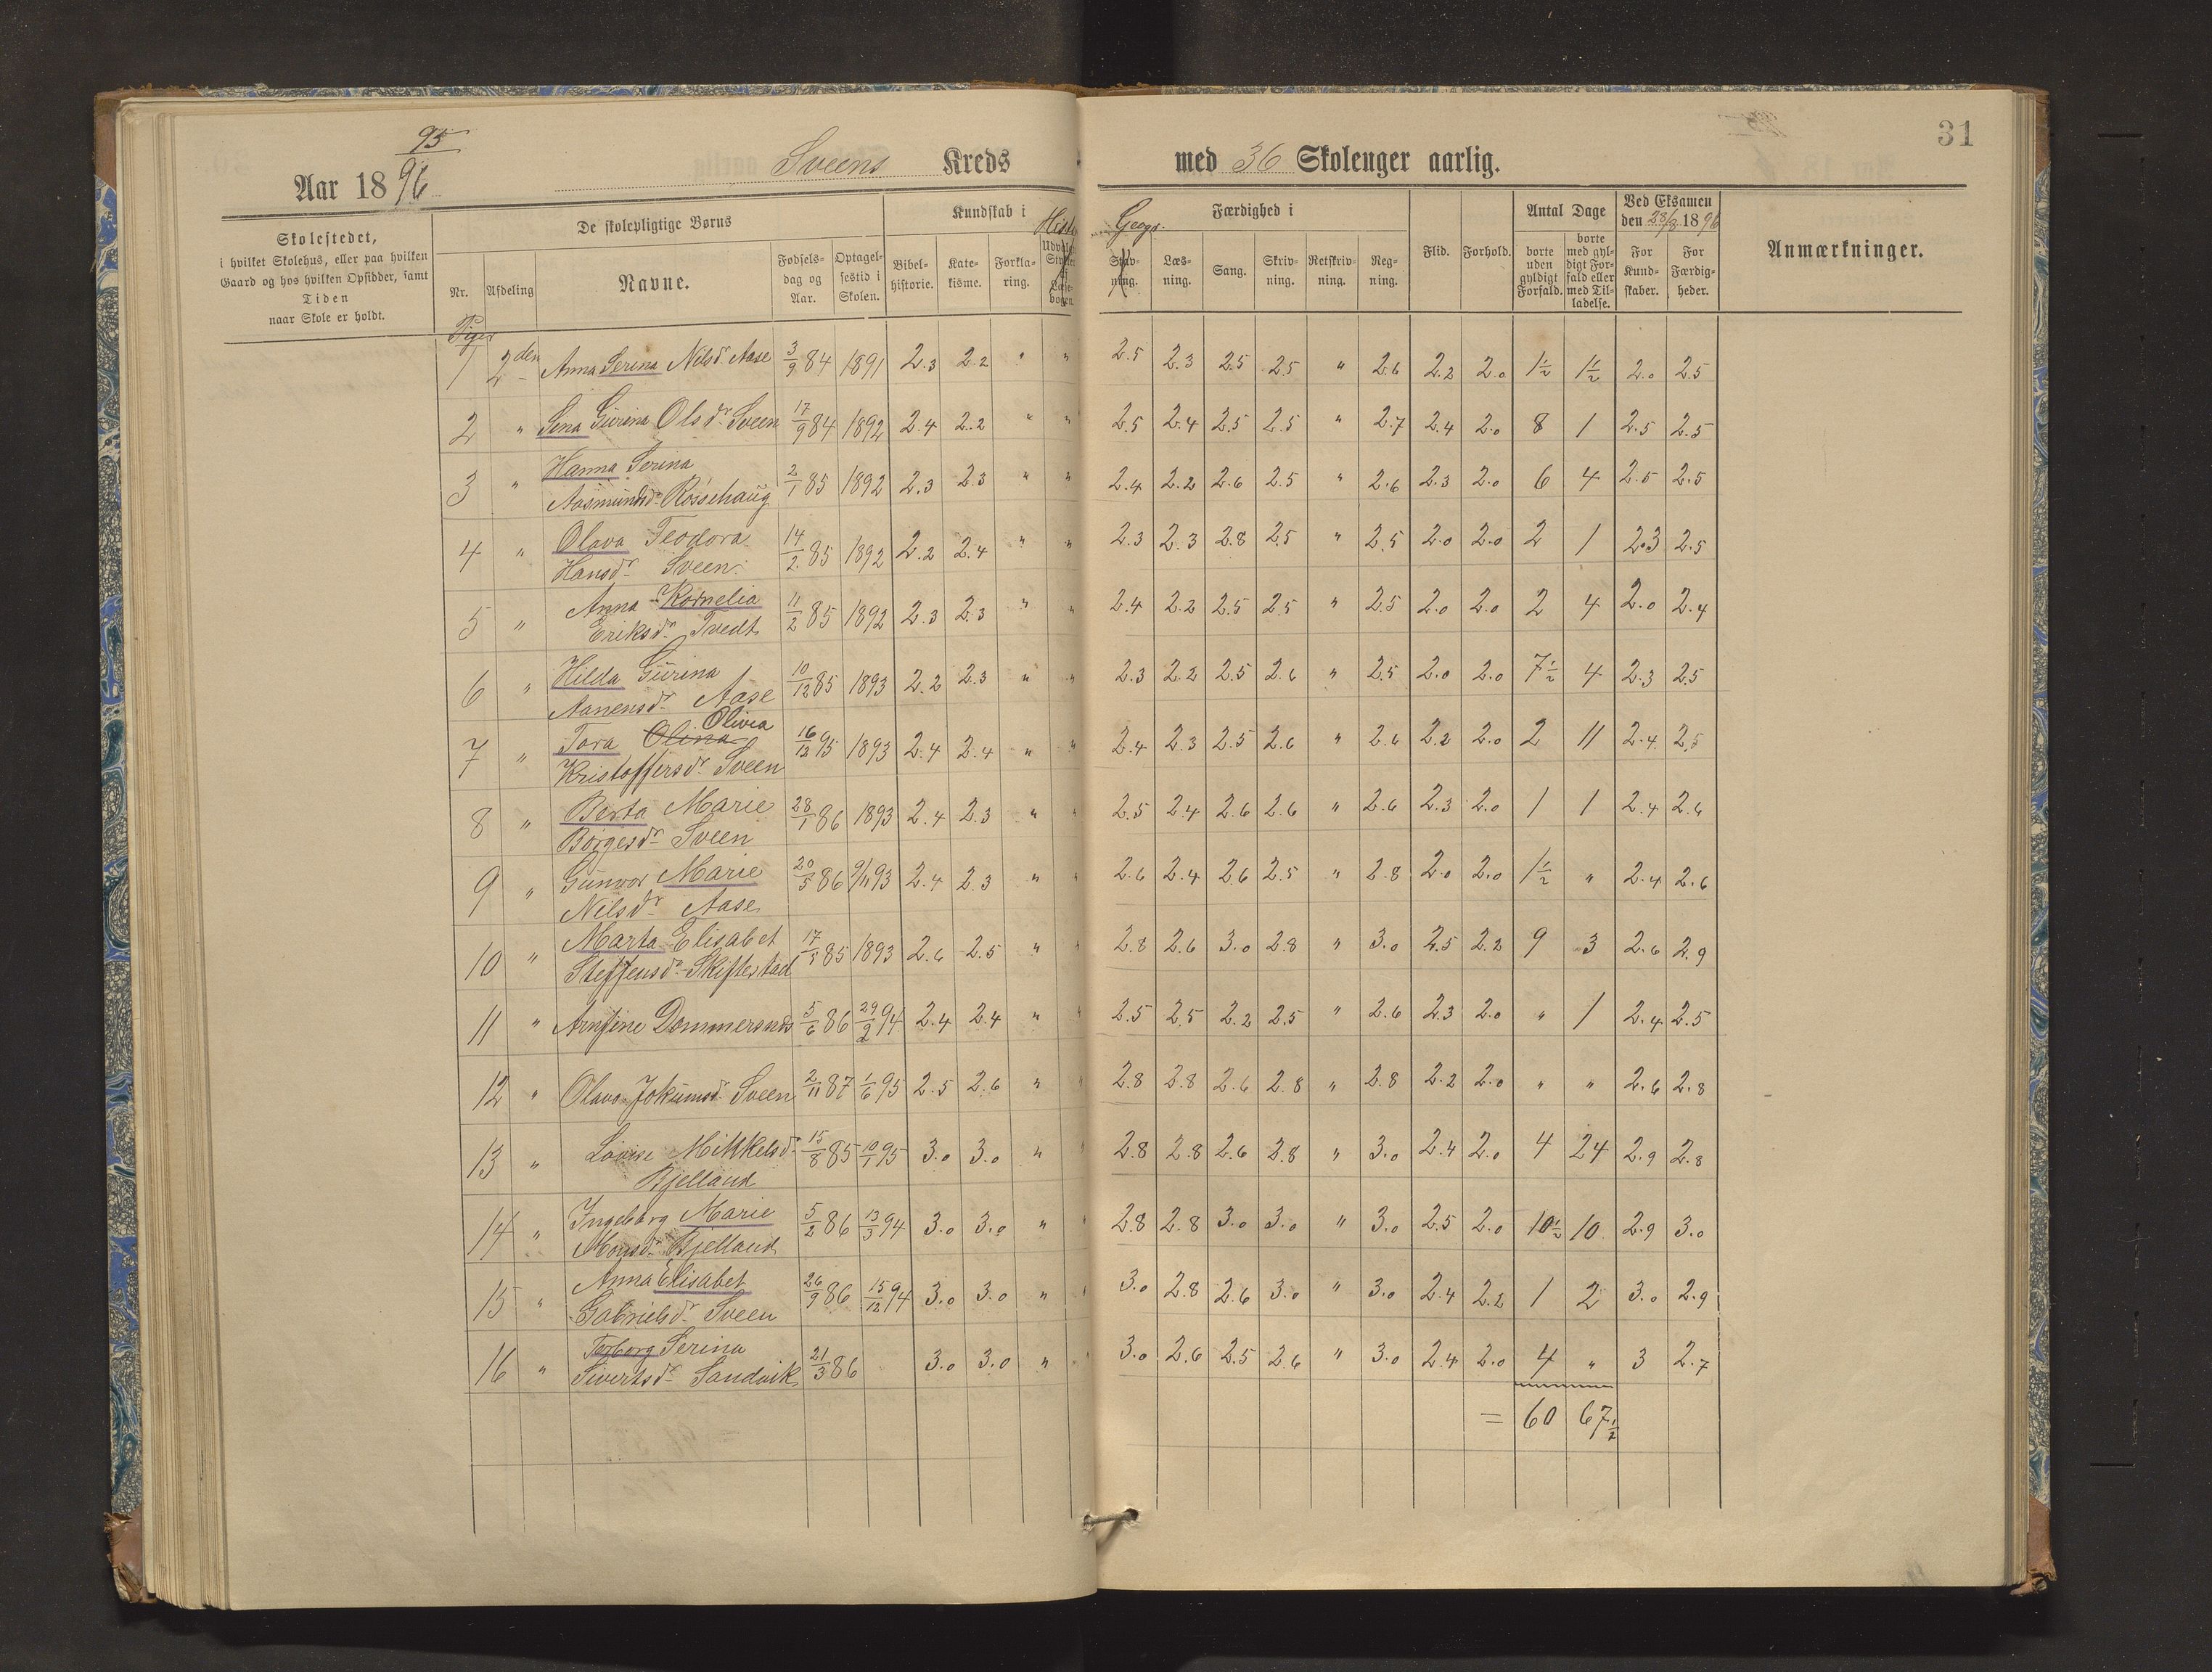 31
Aar 18 95/96
Sveens Kreds med 36 Skolenger aarlig.
Skolestedet,
i hvilket Skolehus, eller paa hvilken
Gaard og hos hvilken Opsidder, samt
Tiden
naar Skole er holdt.
De skolepligtige Børns
Nr. Afdeling Navne. Fødselsdag og Aar. Optagelsestid i Skolen.
Kundskab i
Bibelhistorie. Katekisme. Forklaring. Hist.
Færdighed i
Geogr. Læsning. Sang. Skrivning. Retskrivning. Regning.
Flid. Forhold.
Antal Dage
borte uden gyldigt Forfald. borte med gyldigt Forfald eller med Tilladelse.
Ved Eksamen den 28/3 1896
For Kundskaber. For Færdigheder.
Anmærkninger.
Piger
1 2den Anna Serina Nilsdr Aase 3/9 84 1891 2.3 2.2 " " 2.5 2.3 2.5 2.5 " 2.6 2.2 2.0 1½ 1½ 2.0 2.5
2 " Sina Gurina Olsdr Sveen 17/9 84 1892 2.4 2.2 " " 2.5 2.4 2.5 2.5 " 2.7 2.4 2.0 8 1 2.5 2.5
3 " Hanna Serina
Aasmundsdr Rossehaug 2/1 85 1892 2.3 2.3 " " 2.4 2.2 2.6 2.5 " 2.6 2.3 2.0 6 4 2.5 2.5
4 " Olava Teodora
Hansdr Sveen 14/2 85 1892 2.2 2.4 " " 2.3 2.3 2.8 2.5 " 2.5 2.0 2.0 2 1 2.3 2.5
5 " Anna Kornelia
Eriksdr Tvedt 11/2 85 1892 2.3 2.3 " " 2.4 2.2 2.5 2.5 " 2.5 2.0 2.0 2 4 2.0 2.4
6 " Hilda Gurina
Aanensdr Aase 10/12 85 1893 2.2 2.3 " " 2.3 2.2 2.5 2.6 " 2.5 2.0 2.0 7½ 4 2.3 2.5
7 " Tora Olina Olivia
Kristoffersdr Sveen 16/12 95 1893 2.4 2.4 " " 2.4 2.3 2.5 2.6 " 2.6 2.2 2.0 2 11 2.4 2.5
8 " Berta Marie
Børgesdr Sveen 28/1 86 1893 2.4 2.3 " " 2.5 2.4 2.6 2.6 " 2.6 2.3 2.0 1 1 2.4 2.6
9 " Gunvor Marie
Nilsdr Aase 20/5 86 9/11 93 2.4 2.3 " " 2.6 2.4 2.6 2.5 " 2.8 2.0 2.0 1½ " 2.4 2.6
10 " Marta Elisabet
Steffensdr Skiftestad 17/5 85 1893 2.6 2.5 " " 2.8 2.6 3.0 2.8 " 3.0 2.5 2.2 9 3 2.6 2.9
11 " Arnfine Dommersnes 5/6 86 29/2 94 2.4 2.4 " " 2.5 2.5 2.2 2.5 " 2.6 2.3 2.0 " 1 2.4 2.5
12 " Olava Jokumsdr Sveen 2/11 87 1/6 95 2.5 2.6 " " 2.8 2.8 2.6 2.8 " 2.8 2.2 2.0 " " 2.6 2.8
13 " Lovise Mikkelsdr
Bjelland 15/8 85 10/1 95 3.0 3.0 " " 2.8 2.8 2.6 2.8 " 3.0 2.4 2.0 4 24 2.9 2.8
14 " Ingeborg Marie
Monsdr Bjelland 5/2 86 13/3 94 3.0 3.0 " " 2.8 2.8 3.0 3.0 " 3.0 2.5 2.0 10½ 10 2.9 3.0
15 " Anna Elisabet
Gabrielsdr Sveen 26/9 86 15/12 94 3.0 3.0 " " 3.0 2.8 2.6 3.0 " 3.0 2.4 2.2 1 2 3.0 2.9
16 " Torborg Serina
Sivertsdr Sandvik 21/3 86 3.0 3.0 " " 3.0 2.6 2.5 2.6 " 3.0 2.4 2.0 4 " 3 2.7
= 60 67½